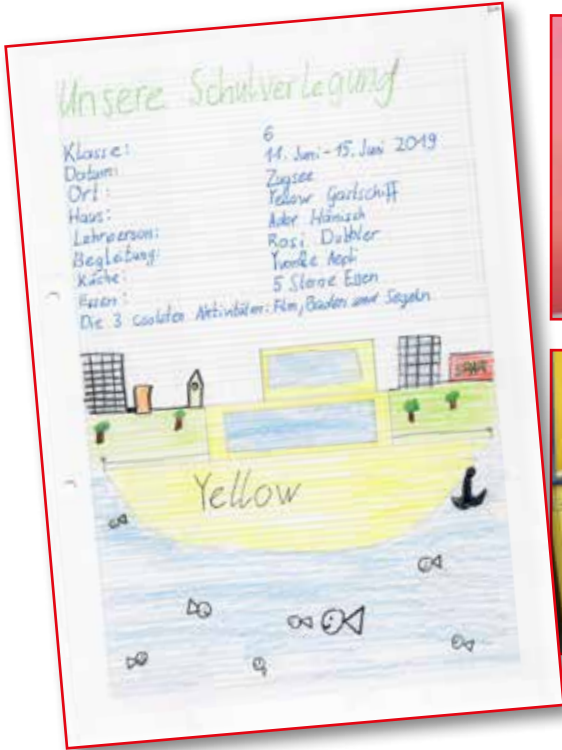 Unsere Schulverlegung
Klasse: 6
Datum: 11. Juni - 15. Juni 2019
Ort: Zugsee
Haus: Yellow
Lehrperson: Ador
Begleitung: Rosi
Küche: Yvonne Aepli
Essen: 5 Sterne Essen
Die 3 coolsten Aktivitäten: Film, Baden und Segeln
Yellow